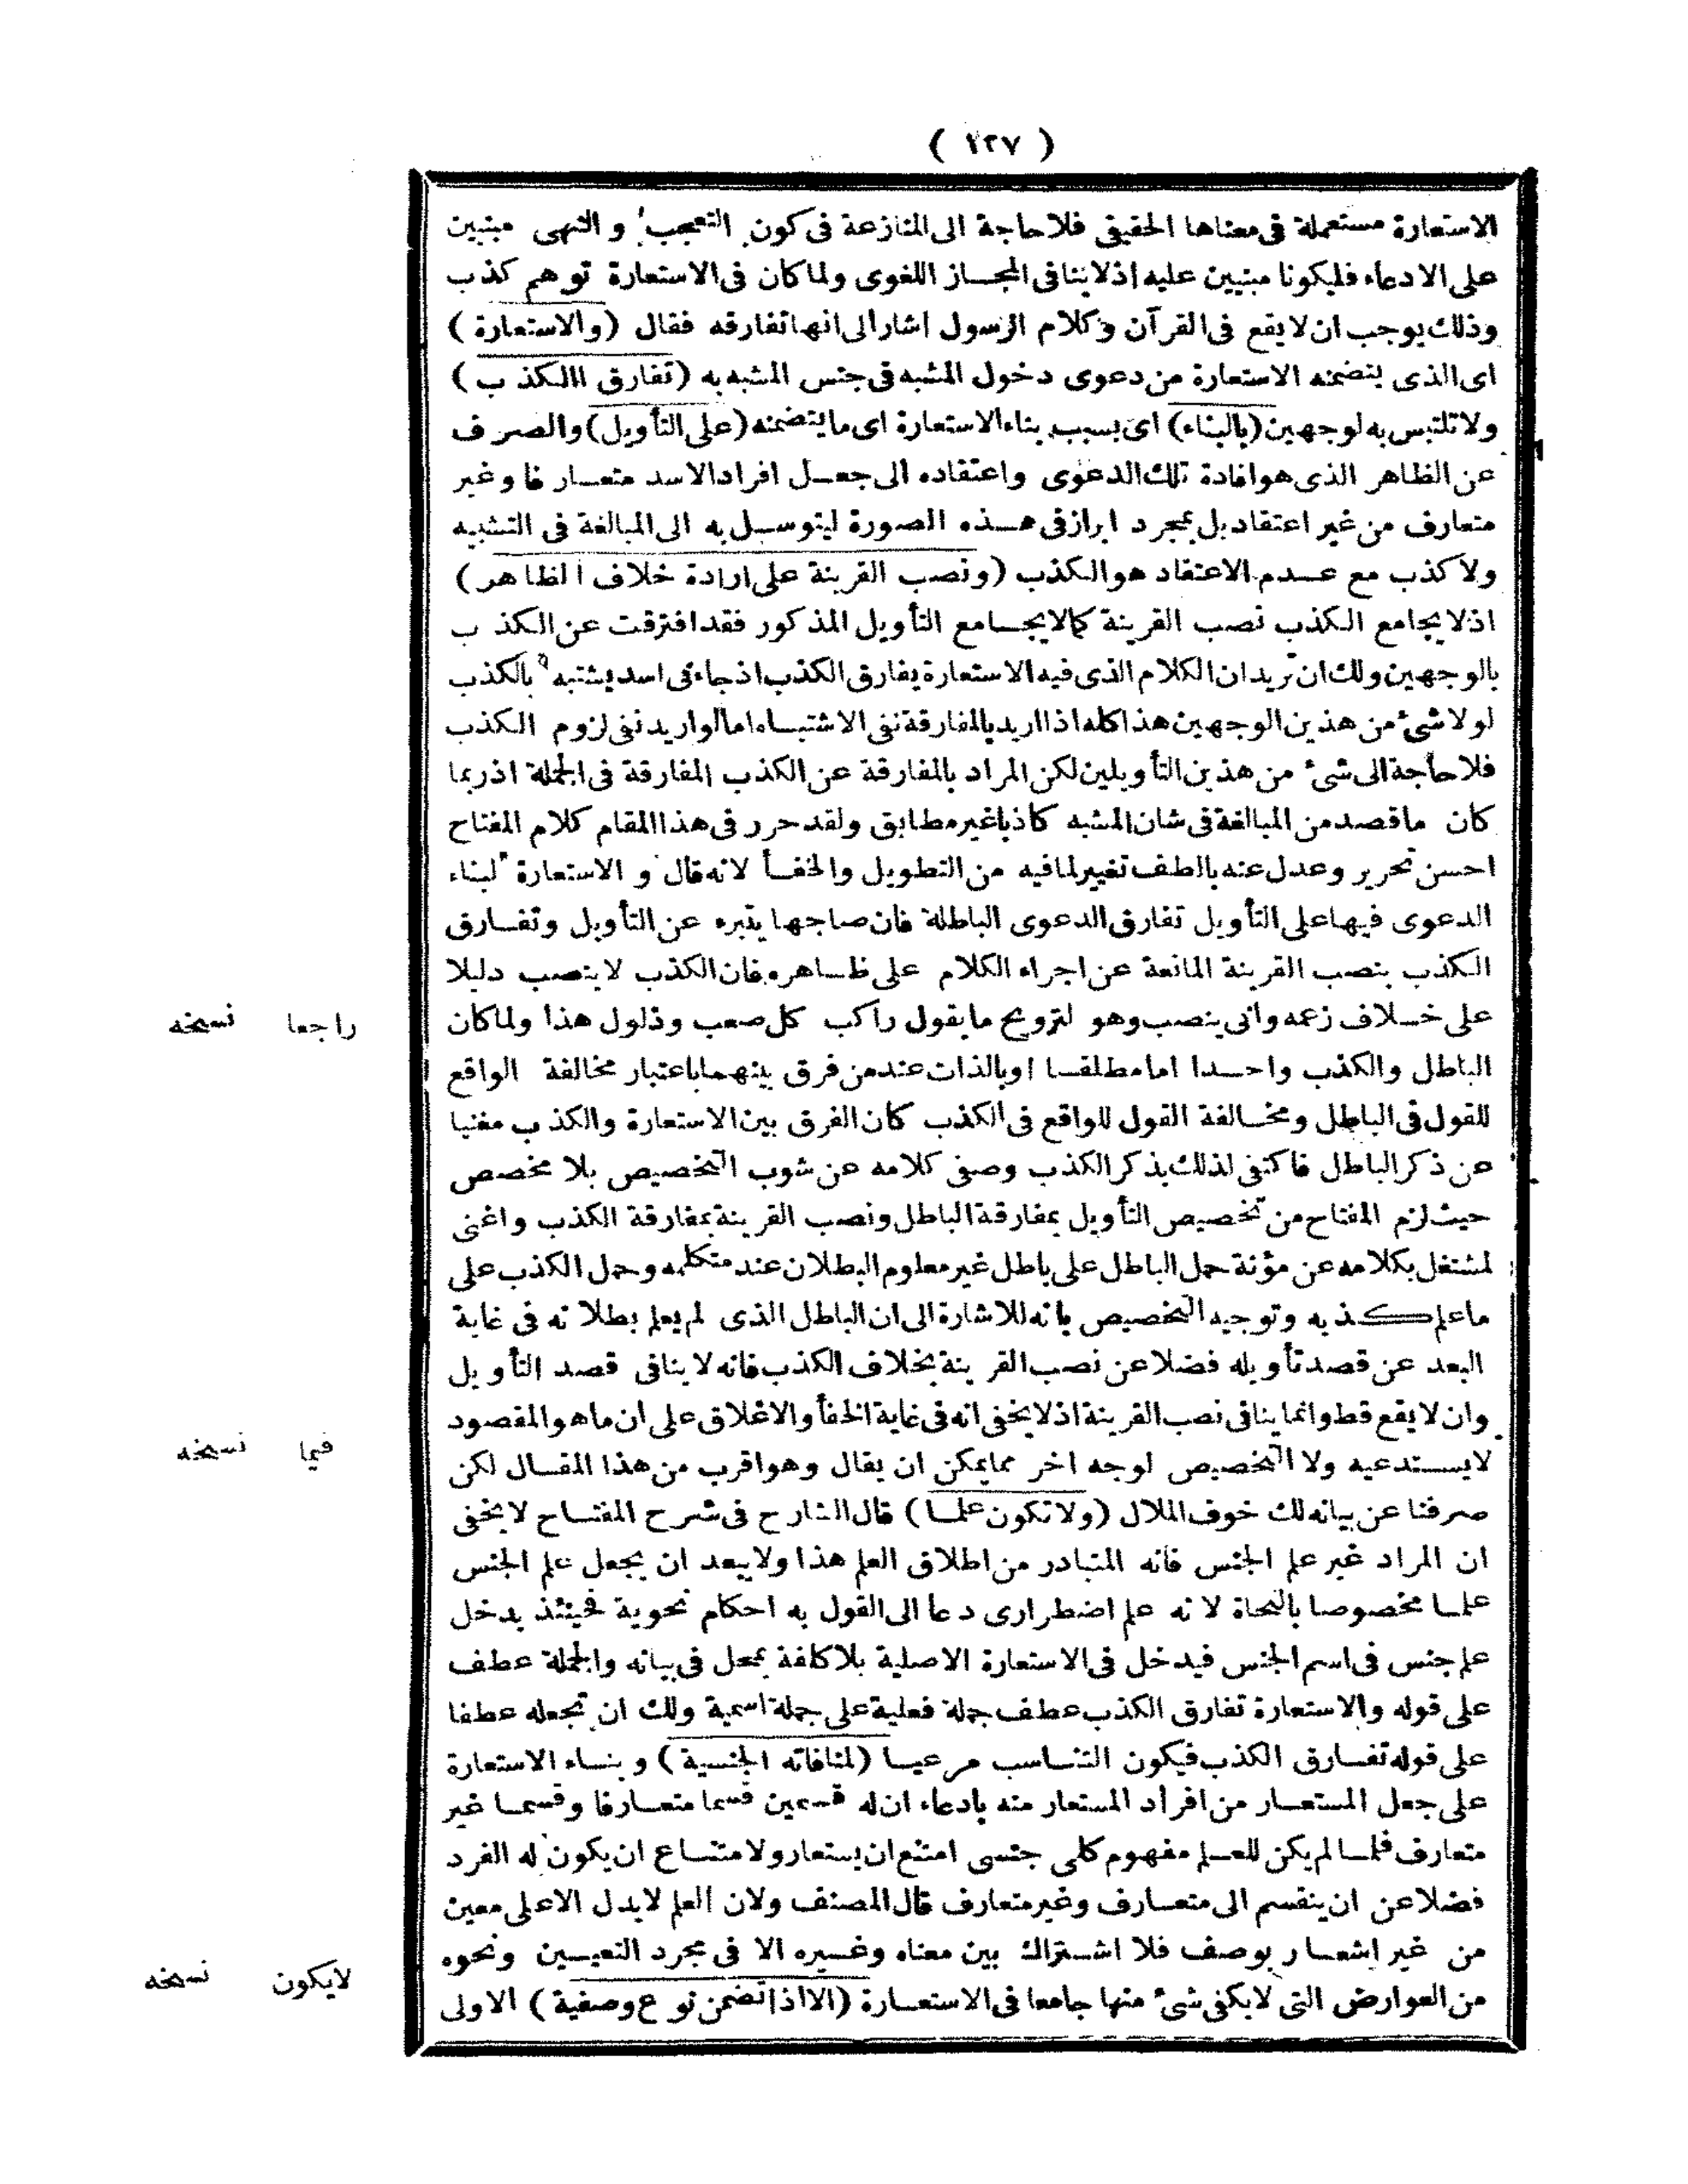 ( ١٢٧ )
الاستعارة مستعملة فى معناها الحقيقى فلا حاجة الى المنازعة فى كون التعجب و النهى مبنيين
على الادعاء فليكونا مبنيين عليه اذ لا ينافى المجاز اللغوى ولما كان فى الاستعارة توهم كذب
وذلك يوجب ان لا يقع فى القرآن وكلام الرسول اشار الى انها تفارقه فقال (والاستعارة)
اى الذى يتضمنه الاستعارة من دعوى دخول المشبه فى جنس المشبه به (تفارق االكذب)
ولا تلتبس به لوجهين (بالبناء) اى بسبب بناء الاستعارة اى ما يتضمنه (على التأويل) والصرف
عن الظاهر الذى هو افادة تلك الدعوى واعتقاده الى جعل افراد الاسد متعارفا وغير
متعارف من غير اعتقاد بل بمجرد ابراز فى هذه الصورة ليتوسل به الى المبالغة فى التشبيه
ولا كذب مع عدم الاعتقاد هو الكذب (ونصب القرينة على ارادة خلاف الظاهر)
اذ لا يجامع الكذب نصب القرينة كما لا يجامع التأويل المذكور فقد افترقت عن الكذب
بالوجهين ولك ان تريد ان الكلام الذى فيه الاستعارة يفارق الكذب اذ جاءنى اسد يشتبه بالكذب
لو لا شئ من هذين الوجهين هذا كله اذا اريد بالمفارقة نفى الاشتباه اما لو اريد نفى لزوم الكذب
فلا حاجة الى شئ من هذين التأويلين لكن المراد بالمفارقة عن الكذب المفارقة فى الجملة اذ ربما
كان ما قصد من المبالغة فى شان المشبه كاذبا غير مطابق ولقد حرر فى هذا المقام كلام المفتاح
احسن تحرير وعدل عنه بالطف تغيير لما فيه من التطويل والخفأ لانه قال و الاستعارة لبناء
الدعوى فيها على التأويل تفارق الدعوى الباطلة فان صاحبها يتبره عن التأويل وتفارق
الكذب بنصب القرينة المانعة عن اجراء الكلام على ظاهره فان الكذب لا ينصب دليلا
على خلاف زعمه وانى ينصب وهو لترويج ما يقول راكب كل صعب وذلول هذا ولما كان
راجعا نسخه
الباطل والكذب واحدا اما مطلقا او بالذات عند من فرق بينهما باعتبار مخالفة الواقع
للقول فى الباطل ومخالفة القول للواقع فى الكذب كان الفرق بين الاستعارة والكذب مغنيا
عن ذكر الباطل فاكتفى لذلك بذكر الكذب وصفى كلامه عن شوب التخصيص بلا مخصص
حيث لزم المفتاح من تخصيص التأويل بمفارقة الباطل ونصب القرينة بمفارقة الكذب واغنى
لمشتغل بكلامه عن مؤنة حمل الباطل على باطل غير معلوم البطلان عند متكلمه وحمل الكذب على
ما علم كذبه وتوجيه التخصيص بانه للاشارة الى ان الباطل الذى لم يعلم بطلانه فى غاية
البعد عن قصد تأويله فضلا عن نصب القرينة بخلاف الكذب فانه لا ينافى قصد التأويل
وان لا يقع قط وانما ينافى نصب القرينة اذ لا يخفى انه فى غاية الخفأ والاغلاق على ان ما هو المقصود
فيما نسخه
لا يستدعيه ولا التخصيص لوجه اخر مما يمكن ان يقال وهو اقرب من هذا المقال لكن
صرفنا عن بيانه لك خوف الملال (ولا تكون علما) قال الشارح فى شرح المفتاح لا يخفى
ان المراد غير علم الجنس فانه المتبادر من اطلاق العلم هذا ولا يبعد ان يجعل علم الجنس
علما مخصوصا بالنحاة لانه علم اضطرارى دعا الى القول به احكام نحوية فحينئذ يدخل
علم جنس فى اسم الجنس فيدخل فى الاستعارة الاصلية بلا كلفة بمحل فى بيانه والجملة عطف
على قوله والاستعارة تفارق الكذب عطف جملة فعلية على جملة اسمية ولك ان تجعله عطفا
على قوله تفارق الكذب فيكون التناسب مرعيا (لمنافاته الجنسية) وبناء الاستعارة
على جعل المستعار من افراد المستعار منه بادعاء ان له قسمين قسما متعارفا وقسما غير
متعارف فلما لم يكن للعلم مفهوم كلى جنسى امتنع ان يستعار ولامتناع ان يكون له الفرد
فضلا عن ان ينقسم الى متعارف وغير متعارف قال المصنف ولان العلم لا يدل الا على معين
من غير اشعار بوصف فلا اشتراك بين معناه وغيره الا فى مجرد التعيين ونحوه
لايكون نسخه
من العوارض التى لا يكفى شئ منها جامعا فى الاستعارة (الا اذا تضمن نوع وصفية) الاولى